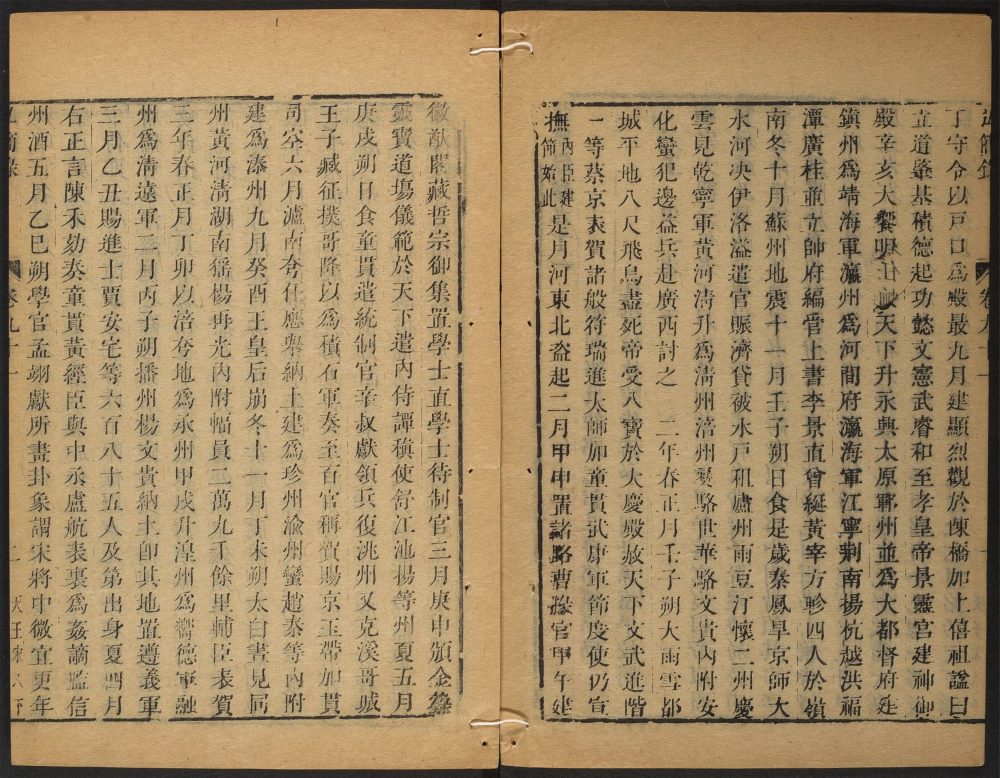 丁守令以戸口爲殿最九月建顯烈觀於陳橋加上僖祖諡曰
立道肇基積德起功懿文憲武睿和至孝皇帝景靈宮建神御
殿辛亥大饗明堂赦天下升永興太原鄆州並爲大都督府延
鎮州爲靖海軍瀛州爲河間府瀛海軍江寧荆南揚杭越洪福
潭廣桂並立帥府編管上書李景直曾綖黃宰方軫四人於嶺
南冬十月蘇州地震十一月壬子朔日食是歲秦鳳旱京師大
水河決伊洛溢遣官賑濟貸被水戸租廬州雨豆汀懷二州慶
雲見乾寧軍黃河清升爲清州涪州夷駱世華駱文貴內附安
化蠻犯邊益兵赴廣西討之　二年春正月壬子朔大雨雪都
城平地八尺飛鳥盡死帝受八寶於大慶殿赦天下文武進階
一等蔡京表賀諸般符瑞進太師加童貫武康軍節度使仍宣
撫內臣建節始此是月河東北盜起二月甲申置諸路曹掾官甲午建
徽猷閣藏哲宗御集置學士直學士待制官三月庚申頒金籙
靈寶道場儀範於天下遣內侍譚稹使舒江池揚等州夏五月
庚戌朔日食童貫遣統制官辛叔獻領兵復洮州又克溪哥城
王子臧征撲哥降以爲積石軍奏至百官稱賀賜京玉帶加貫
司空六月瀘南夸任應舉納土建爲珍州渝州蠻趙泰等內附
建爲溱州九月癸酉王皇后崩冬十一月丁未朔太白晝見同
州黃河清湖南猺楊再光內附幅員二萬九千餘里輔臣表賀
三年春正月丁卯以涪夸地爲承州甲戌升湟州爲嚮德軍融
州爲清遠軍二月丙子朔播州楊文貴納土即其地置遵義軍
三月乙丑賜進士賈安宅等六百八十五人及第出身夏四月
右正言陳禾劾奏童貫黃經臣與中丞盧航表裏爲姦謫監信
州酒五月乙巳朔學官孟翊獻所畫卦象謂宋將中微宜更年